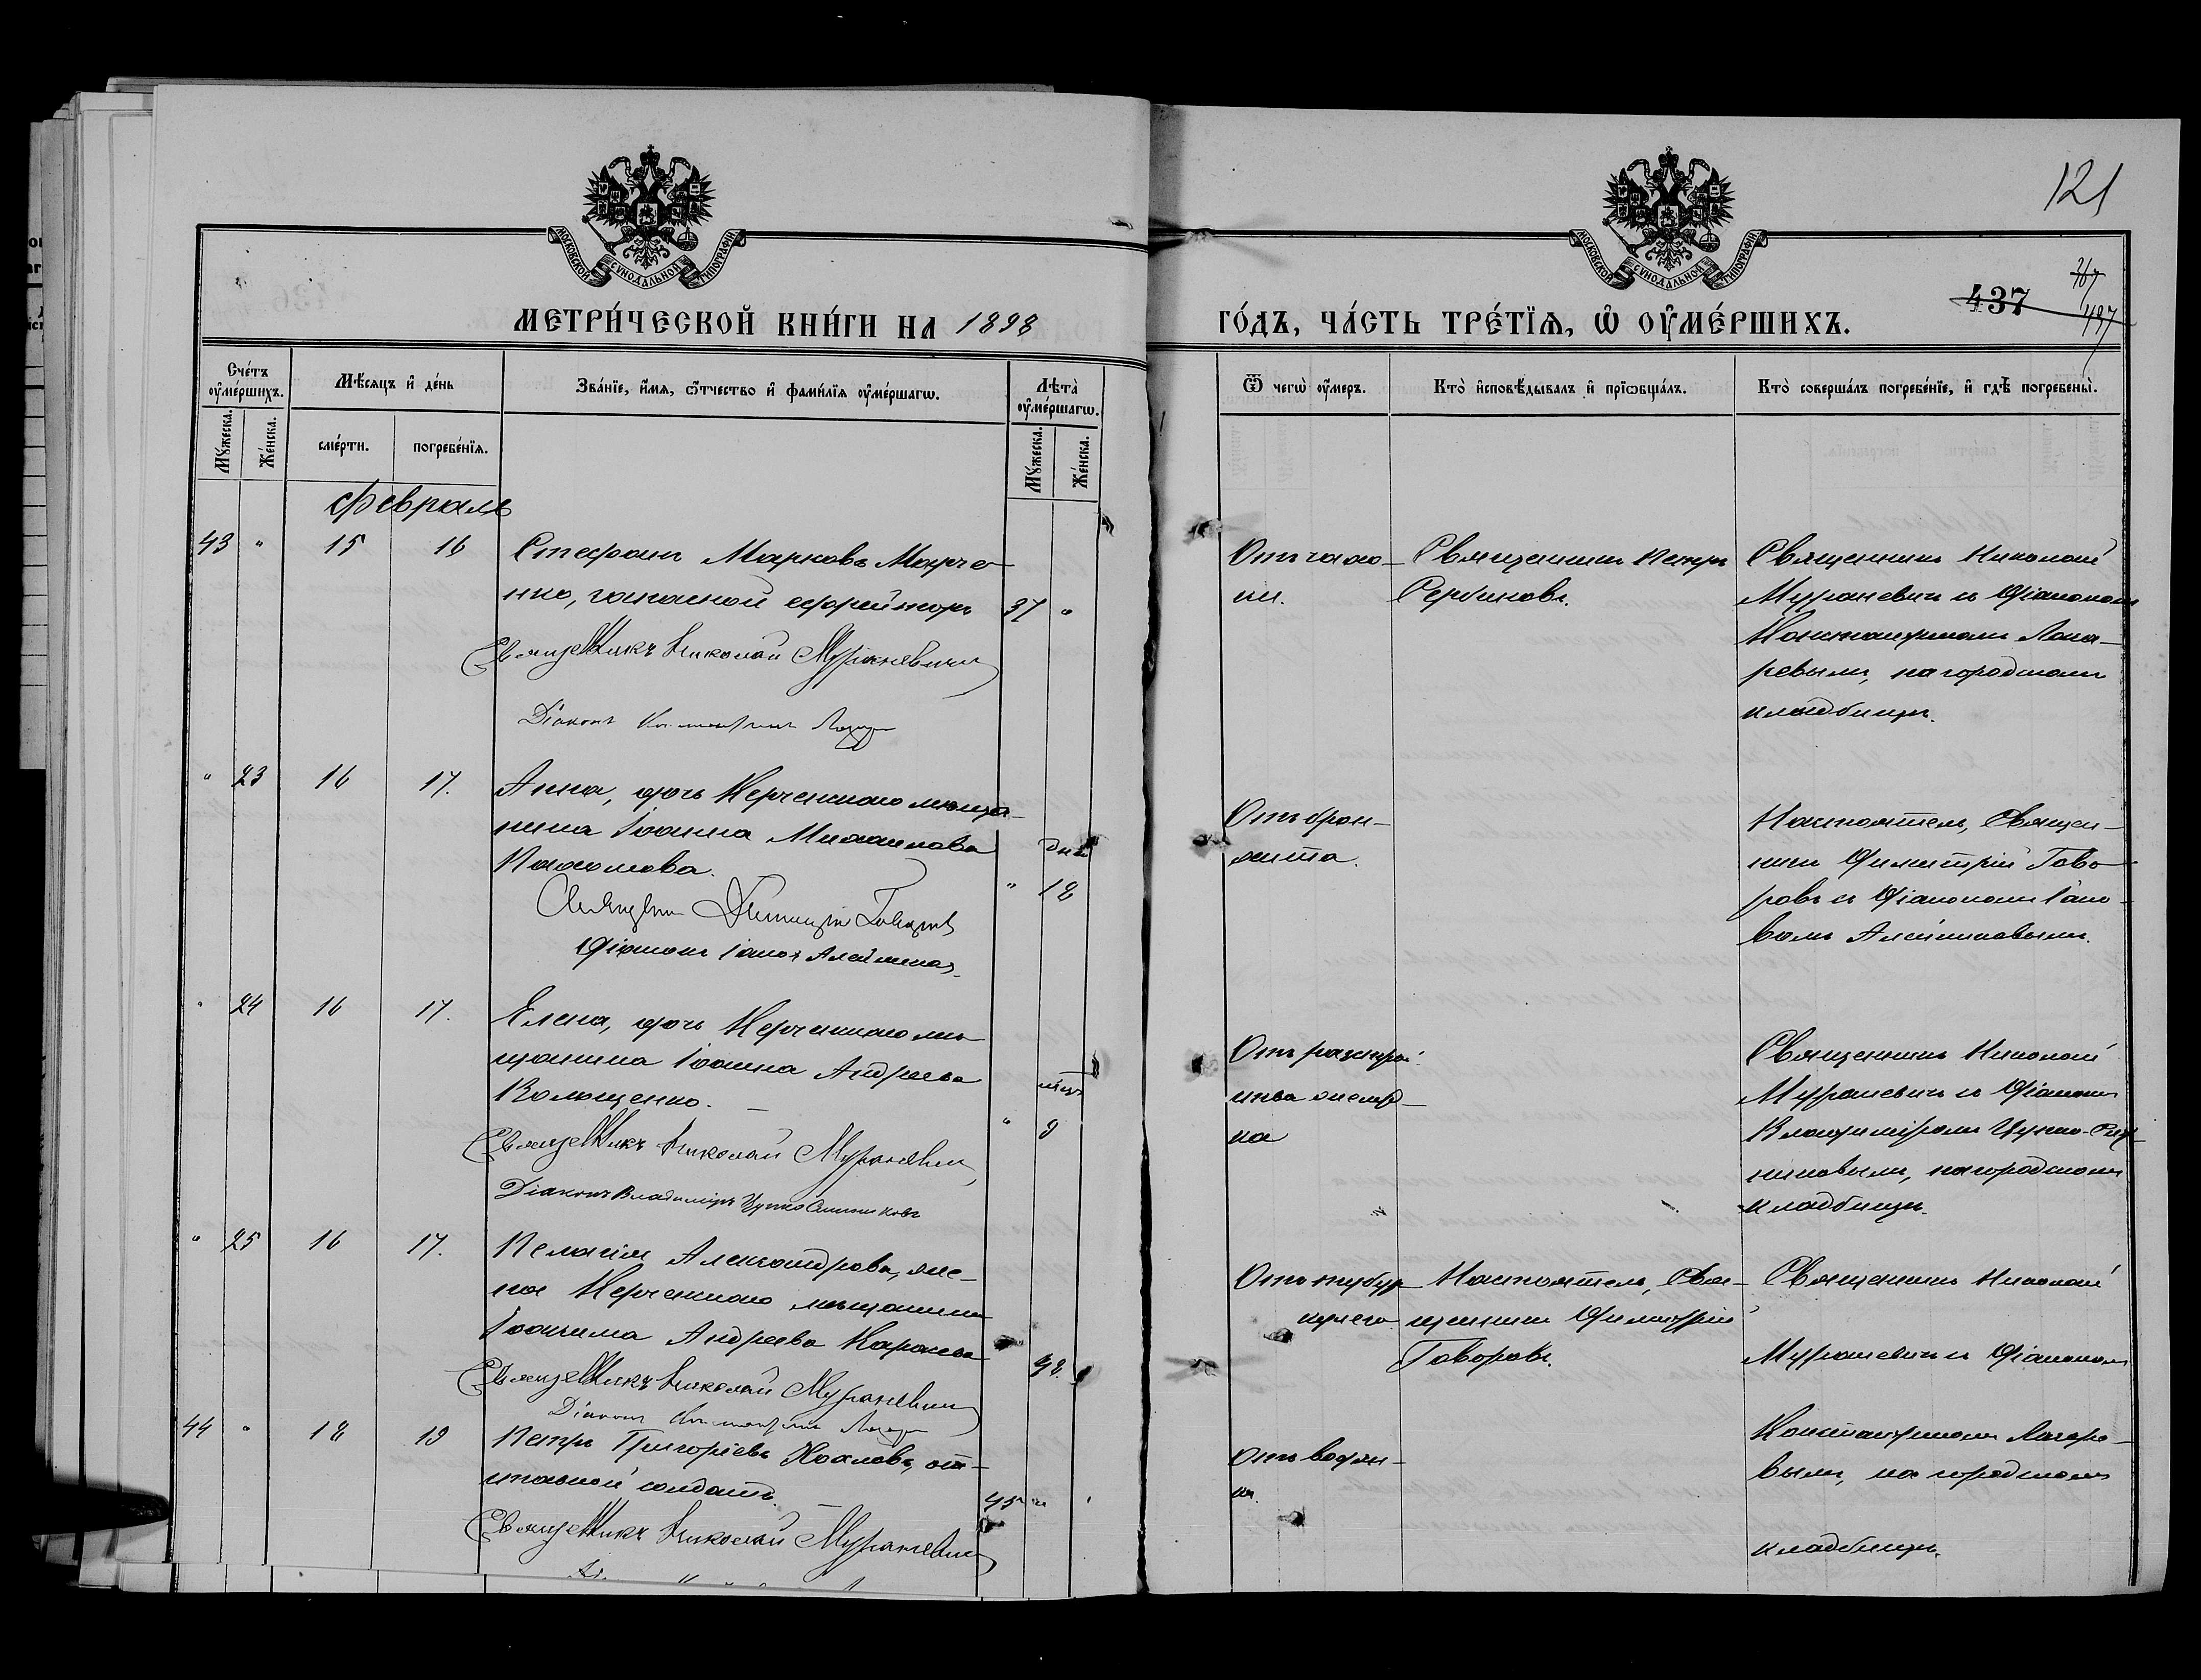 121
МОСКОВСКОЙ СѴНОДАЛЬНОЙ ТИПОГРАФІИ
МОСКОВСКОЙ СѴНОДАЛЬНОЙ ТИПОГРАФІИ
437
МЕТРИ́ЧЕСКОЙ КНИ́ГИ НА 1898
ГО́ДЪ, ЧА́СТЬ ТРЕ́ТЇѦ, Ѡ҆ ОУ҆МЕ́РШИХЪ.
Сче́тъ оу҆ме́ршихъ.
Мꙋ́жеска.
Же́нска.
Мѣ́сяцъ и҆ де́нь
сме́рти.
погребе́нїѧ.
Зва́нїе, и҆́мѧ, ѻ҆́тчество и҆ фами́лїѧ оу҆ме́ршагѡ.
Лѣ́та̀ оу҆ме́ршагѡ.
Мꙋ́жеска.
Же́нска.
Ѿ чегѡ̀ оу҆́меръ.
Кто̀ и҆сповѣ́дывалъ и҆ прїѡбща́лъ.
Кто̀ соверша́лъ погребе́нїе, и҆ гдѣ̀ погребены̀.
Февраль
43 " 15 16 Стефанъ Марковъ Марче-
нко, запасной ефрейторъ 37 "
Священникъ Николай Мураневичъ
Діаконъ Константинъ
Отъ чахо-
ки.
Священникъ Петръ
Сербиновъ.
Священникъ Николай
Мураневичъ съ Діакономъ
Константиномъ Лаза-
ревымъ, на городскомъ
кладбищѣ.
" 23 16 17. Анна, дочь Керченскаго мѣща-
нина Іоанна Михаилова
Пахомова.
дней
" 18
Священникъ Димитрій Говоровъ
Діаконъ Іаковъ Алейников
Отъ брон-
хита.
Настоятель, Священ-
никъ Димитрій Гово-
ровъ съ Діакономъ Іако-
вомъ Алейниковымъ.
" 24 16 17. Елена, дочь Керченскаго мѣ-
щанина Іоанна Андреева
Волощенко.
мѣс.
" 9
Священникъ Николай Мураневичъ
Діаконъ Владиміръ Чупко-Ситниковъ
Отъ разстрой-
ства желуд-
ка
Священникъ Николай
Мураневичъ съ Діакономъ
Владиміромъ Чупко-Сит-
никовымъ, на городскомъ
кладбищѣ.
" 25 16 17. Пелагія Александрова, же-
на Керченскаго мѣщанина
Іоакима Андреева
Священникъ Николай Мураневичъ
Діаконъ Константинъ
Отъ тубер-
Настоятель, Свя-
щенникъ Димитрій
Говоровъ.
Священникъ Николай
Мураневичъ съ Діакономъ
Константиномъ Лазаре-
вымъ, на городскомъ
кладбищѣ.
44 " 18 19 Петръ Григорьевъ Козловъ, от-
ставной солдатъ. 45 "
Священникъ Николай Мураневичъ
Отъ водян-
ки.